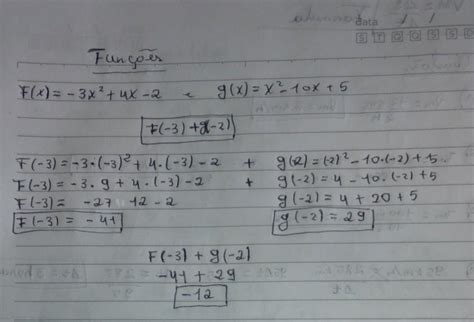 data
S T Q Q S S D
Funções
F(x) = -3x² + 4x - 2 e g(x) = x² - 10x + 5
F(-3) + g(-2)
F(-3) = -3·(-3)² + 4·(-3) - 2 + g(2) = (-2)² - 10·(-2) + 5
F(-3) = -3·9 + 4·(-3) - 2 + g(-2) = 4 - 10·(-2) + 5
F(-3) = -27 12 - 2 g(-2) = 4 + 20 + 5
F(-3) = -41 g(-2) = 29
F(-3) + g(-2)
-41 + 29
-12